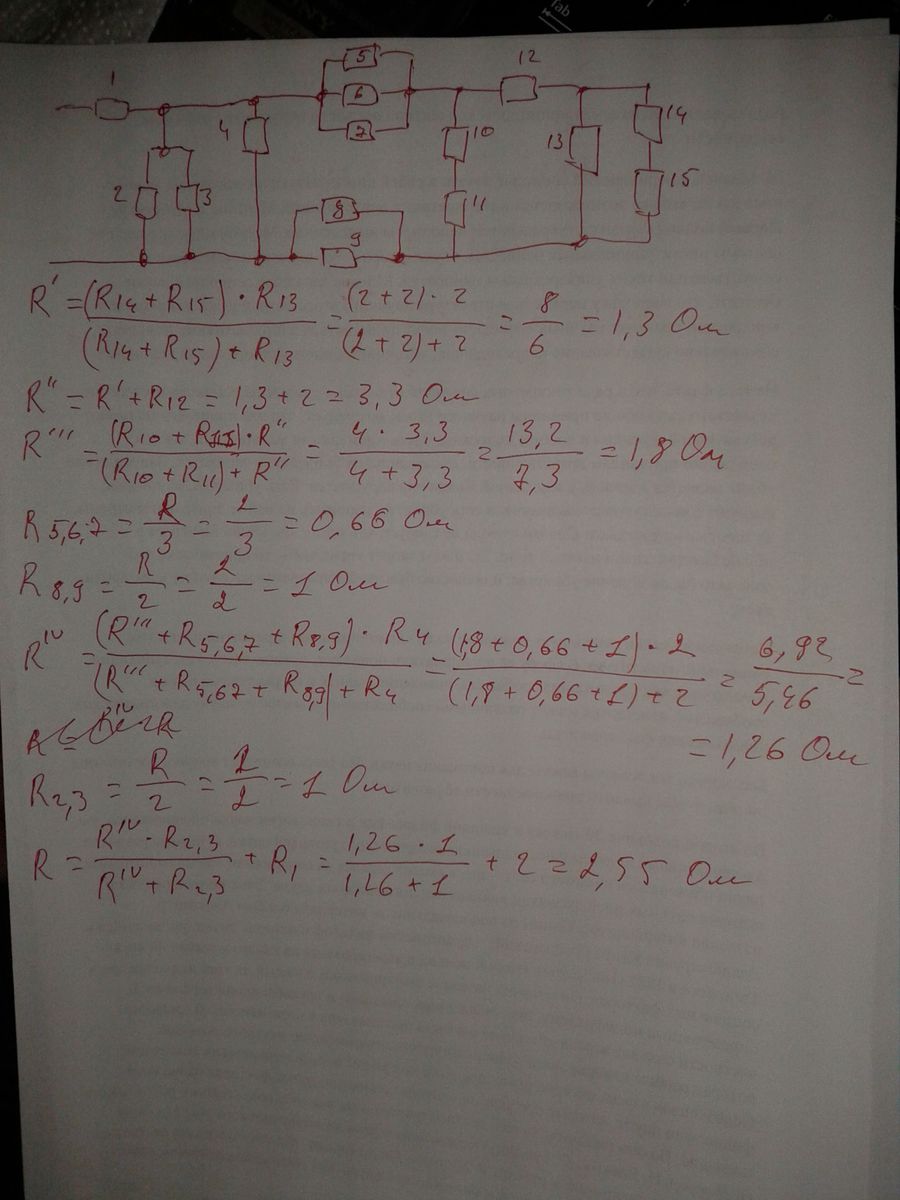 1
5
6
7
12
4
10
13
14
15
2
3
8
9
11
R' = (R14 + R15) · R13 / (R14 + R15) + R13 = (2 + 2) · 2 / (2 + 2) + 2 = 8 / 6 = 1,3 Ом
R'' = R' + R12 = 1,3 + 2 = 3,3 Ом
R''' = (R10 + R11) · R'' / (R10 + R11) + R'' = 4 · 3,3 / 4 + 3,3 = 13,2 / 7,3 = 1,8 Ом
R5,6,7 = R / 3 = 2 / 3 = 0,66 Ом
R8,9 = R / 2 = 2 / 2 = 1 Ом
R^IV = (R''' + R5,6,7 + R8,9) · R4 / (R''' + R5,67 + R8,9) + R4 = (1,8 + 0,66 + 1) · 2 / (1,8 + 0,66 + 1) + 2 = 6,92 / 5,46 =
= 1,26 Ом
R2,3 = R / 2 = 2 / 2 = 1 Ом
R = R^IV · R2,3 / R^IV + R2,3 + R1 = 1,26 · 1 / 1,26 + 1 + 2 = 2,55 Ом